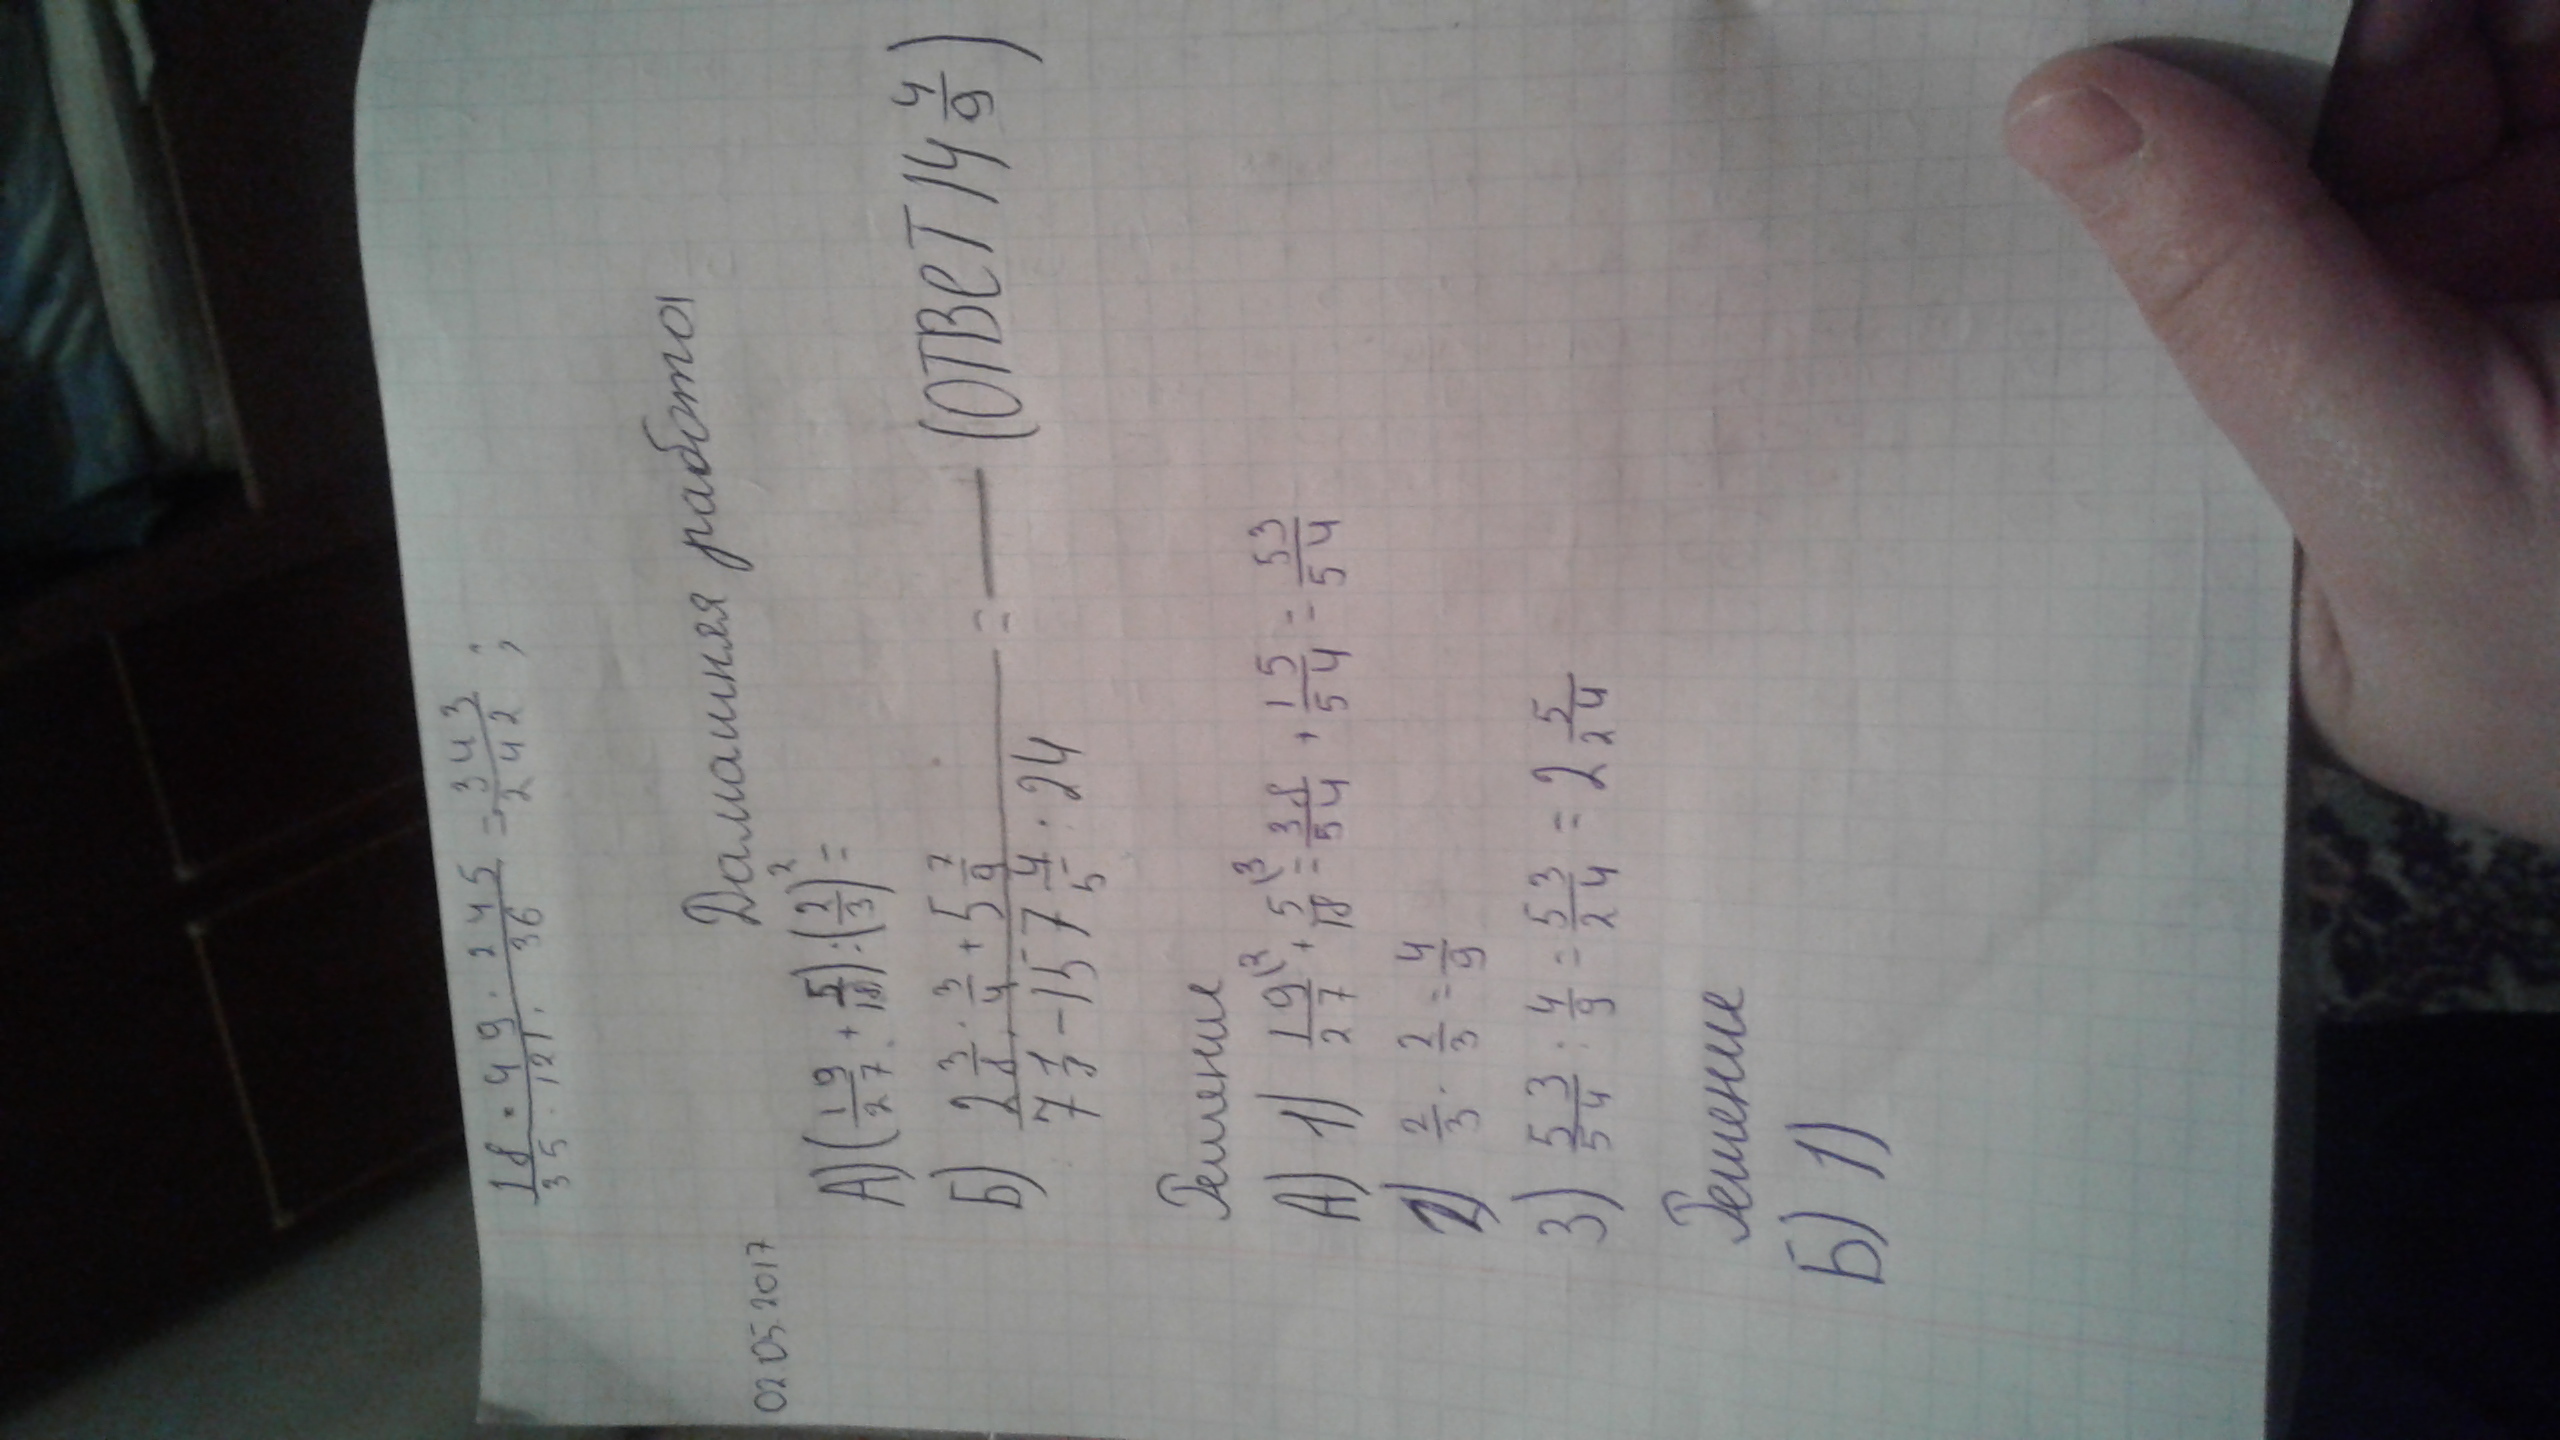 18/35 · 49/121 · 245/36 = 343/242 ;
Домашняя работа
02 05.2017
А) (19/27 + 5/18) : (2/3)² =
Б) (2 3/8 · 3/4 + 5 7/9) / (7 1/8 - 157 4/5 : 24) = — (ОТВЕТ 14 4/9)
Решение
А) 1) 19/27 (2 + 5/18 (3 = 38/54 + 15/54 = 53/54
2) 2/3 · 2/3 = 4/9
3) 53/54 : 4/9 = 53/24 = 2 5/24
Решение
Б) 1)